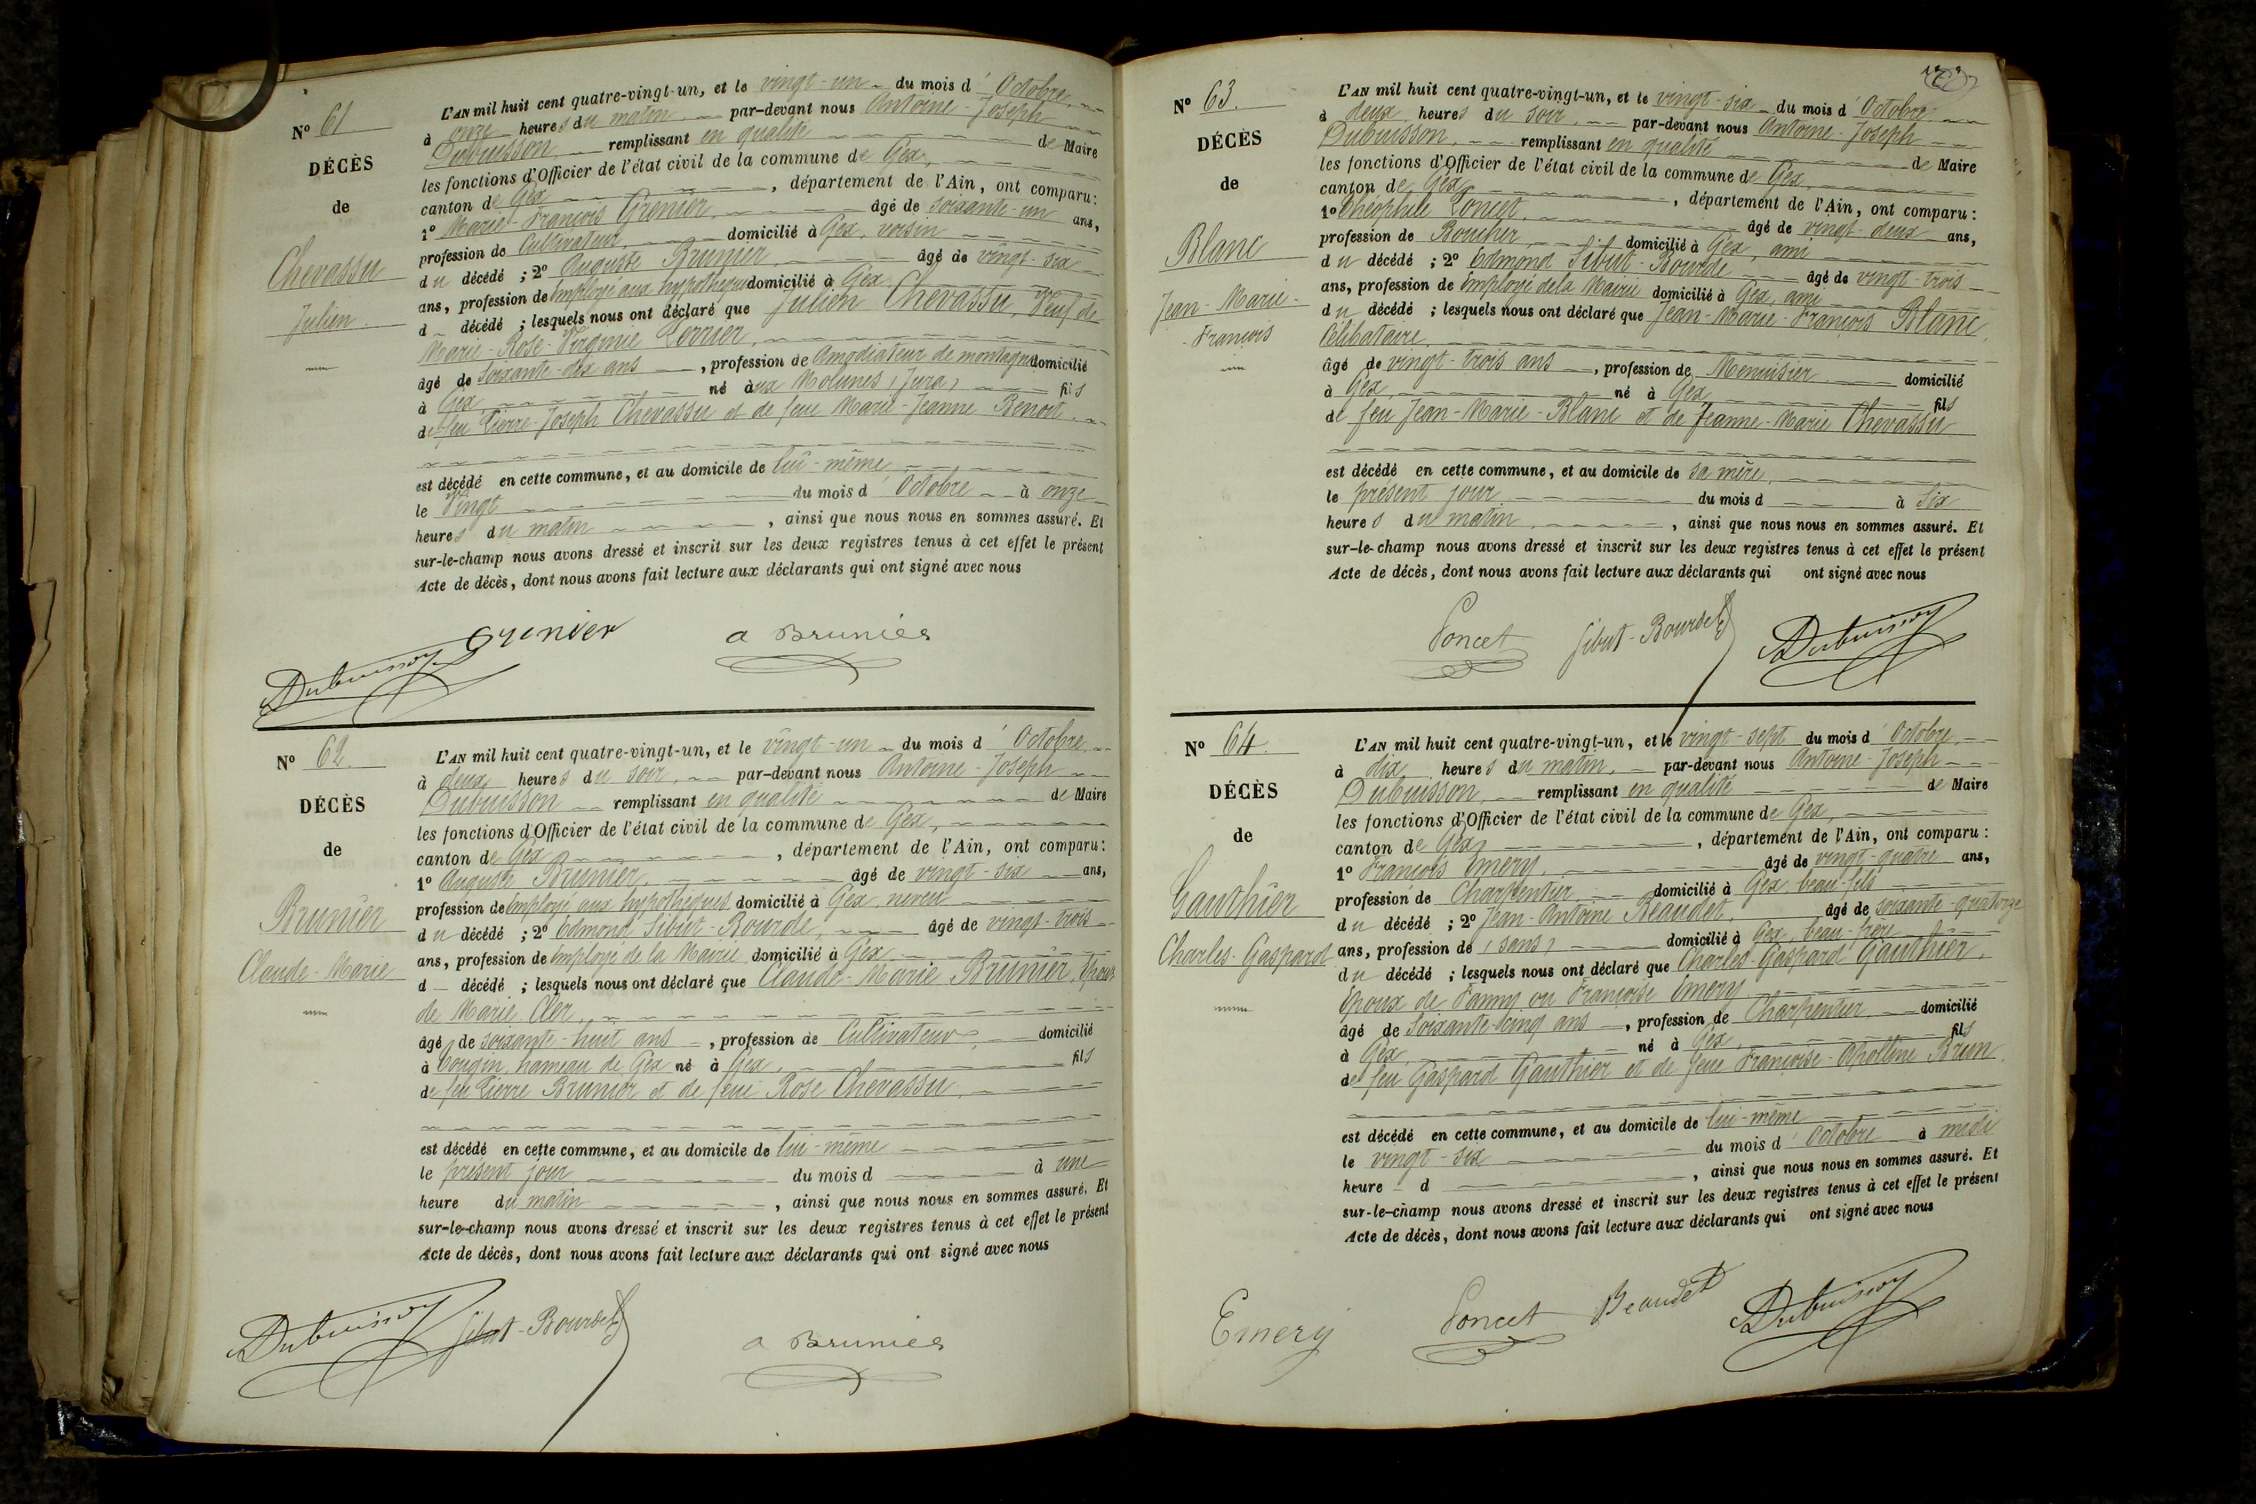 N° 61
DÉCÈS
de
Chevassu
Julien
L'AN mil huit cent quatre-vingt-un, et le vingt-un du mois d'Octobre
à onze heures du matin par-devant nous Antoine-Joseph
Dubuisson, remplissant en qualité de Maire
les fonctions d'Officier de l'état civil de la commune de Gex,
canton de Gex, département de l'Ain, ont comparu:
1° Marie-François Grenier, âgé de soixante-un ans,
profession de Cultivateur, domicilié à Gex, voisin
du décédé ; 2° Auguste Brunier, âgé de vingt-six
ans, profession de Employé aux hypothèques domicilié à Gex
d décédé ; lesquels nous ont déclaré que Julien Chevassu, Veuf de
Marie-Rose-Virginie Perrier,
âgé de soixante-dix ans, profession de Amodiateur de montagne domicilié
à Gex, né aux Molunes (Jura) fils
de feu Pierre-Joseph Chevassu et de feue Marie-Jeanne Benoit.
est décédé en cette commune, et au domicile de lui-même
le Vingt du mois d'Octobre à onze
heures du matin, ainsi que nous nous en sommes assuré. Et
sur-le-champ nous avons dressé et inscrit sur les deux registres tenus à cet effet le présent
Acte de décès, dont nous avons fait lecture aux déclarants qui ont signé avec nous
Grenier
a Brunier
Dubuisson
N° 62.
DÉCÈS
de
Brunier
Claude-Marie
L'AN mil huit cent quatre-vingt-un, et le vingt-un du mois d'Octobre
à deux heures du soir, par-devant nous Antoine-Joseph
Dubuisson remplissant en qualité de Maire
les fonctions d'Officier de l'état civil de la commune de Gex,
canton de Gex, département de l'Ain, ont comparu:
1° Auguste Brunier, âgé de vingt-six ans,
profession de Employé aux hypothèques domicilié à Gex, neveu
du décédé ; 2° Edmond Sibut-Bourde, âgé de vingt-trois
ans, profession de Employé de la Mairie domicilié à Gex
d décédé ; lesquels nous ont déclaré que Claude-Marie Brunier, Epoux
de Marie Cler,
âgé de soixante-huit ans, profession de Cultivateur, domicilié
à Tougin, hameau de Gex né à Gex, fils
de feu Pierre Brunier et de feue Rose Chevassu,
est décédé en cette commune, et au domicile de lui-même
le présent jour du mois d à une
heure du matin, ainsi que nous nous en sommes assuré. Et
sur-le-champ nous avons dressé et inscrit sur les deux registres tenus à cet effet le présent
Acte de décès, dont nous avons fait lecture aux déclarants qui ont signé avec nous
Dubuisson
Sibut-Bourde
a Brunier
N° 63.
DÉCÈS
de
Blanc
Jean-Marie-
François
L'AN mil huit cent quatre-vingt-un, et le vingt-six du mois d'Octobre
à deux heures du soir, par-devant nous Antoine-Joseph
Dubuisson, remplissant en qualité de Maire
les fonctions d'Officier de l'état civil de la commune de Gex,
canton de Gex, département de l'Ain, ont comparu:
1° Théophile Poncet, âgé de vingt-deux ans,
profession de Boucher, domicilié à Gex, ami
du décédé ; 2° Edmond Sibut-Bourde âgé de vingt-trois
ans, profession de Employé de la Mairie domicilié à Gex, ami
du décédé ; lesquels nous ont déclaré que Jean-Marie-François Blanc,
Célibataire,
âgé de vingt-trois ans, profession de Menuisier domicilié
à Gex, né à Gex, fils
de feu Jean-Marie-Blanc et de Jeanne-Marie Chevassu
est décédé en cette commune, et au domicile de sa mère,
le présent jour du mois d à six
heures du matin, ainsi que nous nous en sommes assuré. Et
sur-le-champ nous avons dressé et inscrit sur les deux registres tenus à cet effet le présent
Acte de décès, dont nous avons fait lecture aux déclarants qui ont signé avec nous
Poncet
Sibut-Bourde
Dubuisson
N° 64.
DÉCÈS
de
Gauthier
Charles-Gaspard
L'AN mil huit cent quatre-vingt-un, et le vingt-sept du mois d'Octobre
à dix heures du matin, par-devant nous Antoine-Joseph
Dubuisson, remplissant en qualité de Maire
les fonctions d'Officier de l'état civil de la commune de Gex,
canton de Gex, département de l'Ain, ont comparu:
1° François Emery, âgé de vingt-quatre ans,
profession de Charpentier, domicilié à Gex, beau-fils
du décédé ; 2° Jean-Antoine Beaudet, âgé de soixante-quatorze
ans, profession de (sans) domicilié à Gex, beau-frère
du décédé ; lesquels nous ont déclaré que Charles-Gaspard Gauthier,
Epoux de Fanny ou Françoise Emery
âgé de Soixante-cinq ans, profession de Charpentier domicilié
à Gex, né à Gex, fils
de feu Gaspard Gauthier et de feue Françoise-Apolline Brun.
est décédé en cette commune, et au domicile de lui-même
le vingt-six du mois d'Octobre à midi
heure d, ainsi que nous nous en sommes assuré. Et
sur-le-champ nous avons dressé et inscrit sur les deux registres tenus à cet effet le présent
Acte de décès, dont nous avons fait lecture aux déclarants qui ont signé avec nous
Emery
Poncet
Beaudet
Dubuisson